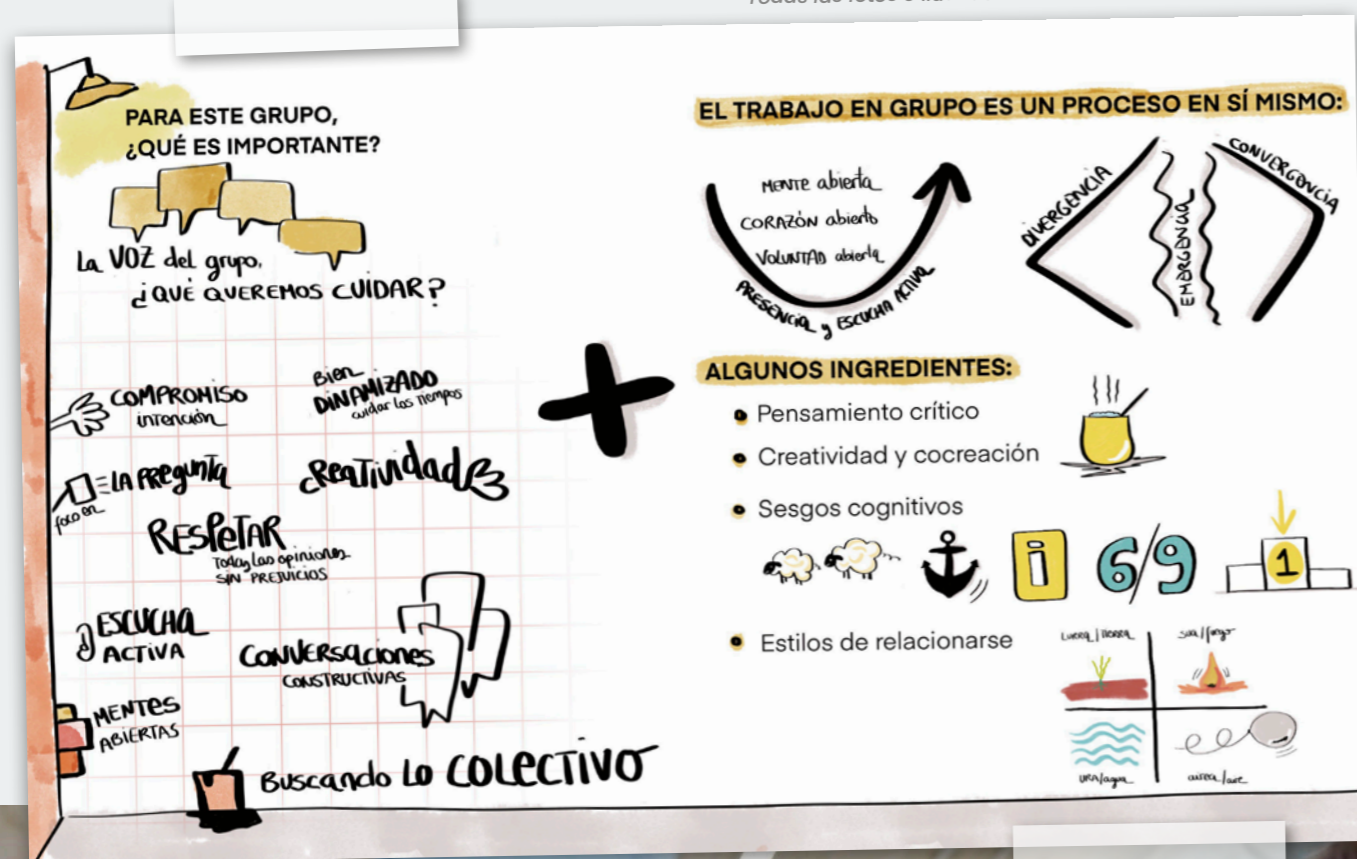 PARA ESTE GRUPO,
¿QUÉ ES IMPORTANTE?
La VOZ del grupo,
¿QUÉ QUEREMOS CUIDAR?
COMPROMISO
intención
Bien
DINAMIZADO
cuidar los tiempos
foco en
LA PREGUNTA
CREATIVIDAD
RESPETAR
Todas las opiniones
SIN PREJUICIOS
ESCUCHA
ACTIVA
CONVERSACIONES
CONSTRUCTIVAS
MENTES
ABIERTAS
BUSCANDO LO COLECTIVO
EL TRABAJO EN GRUPO ES UN PROCESO EN SÍ MISMO:
MENTE abierta
CORAZÓN abierto
VOLUNTAD abierta
PRESENCIA y ESCUCHA ACTIVA
DIVERGENCIA
EMERGENCIA
CONVERGENCIA
ALGUNOS INGREDIENTES:
Pensamiento crítico
Creatividad y cocreación
Sesgos cognitivos
i
6/9
1
Estilos de relacionarse
LURRA / TIERRA
sua / fuego
URA / agua
airea / aire